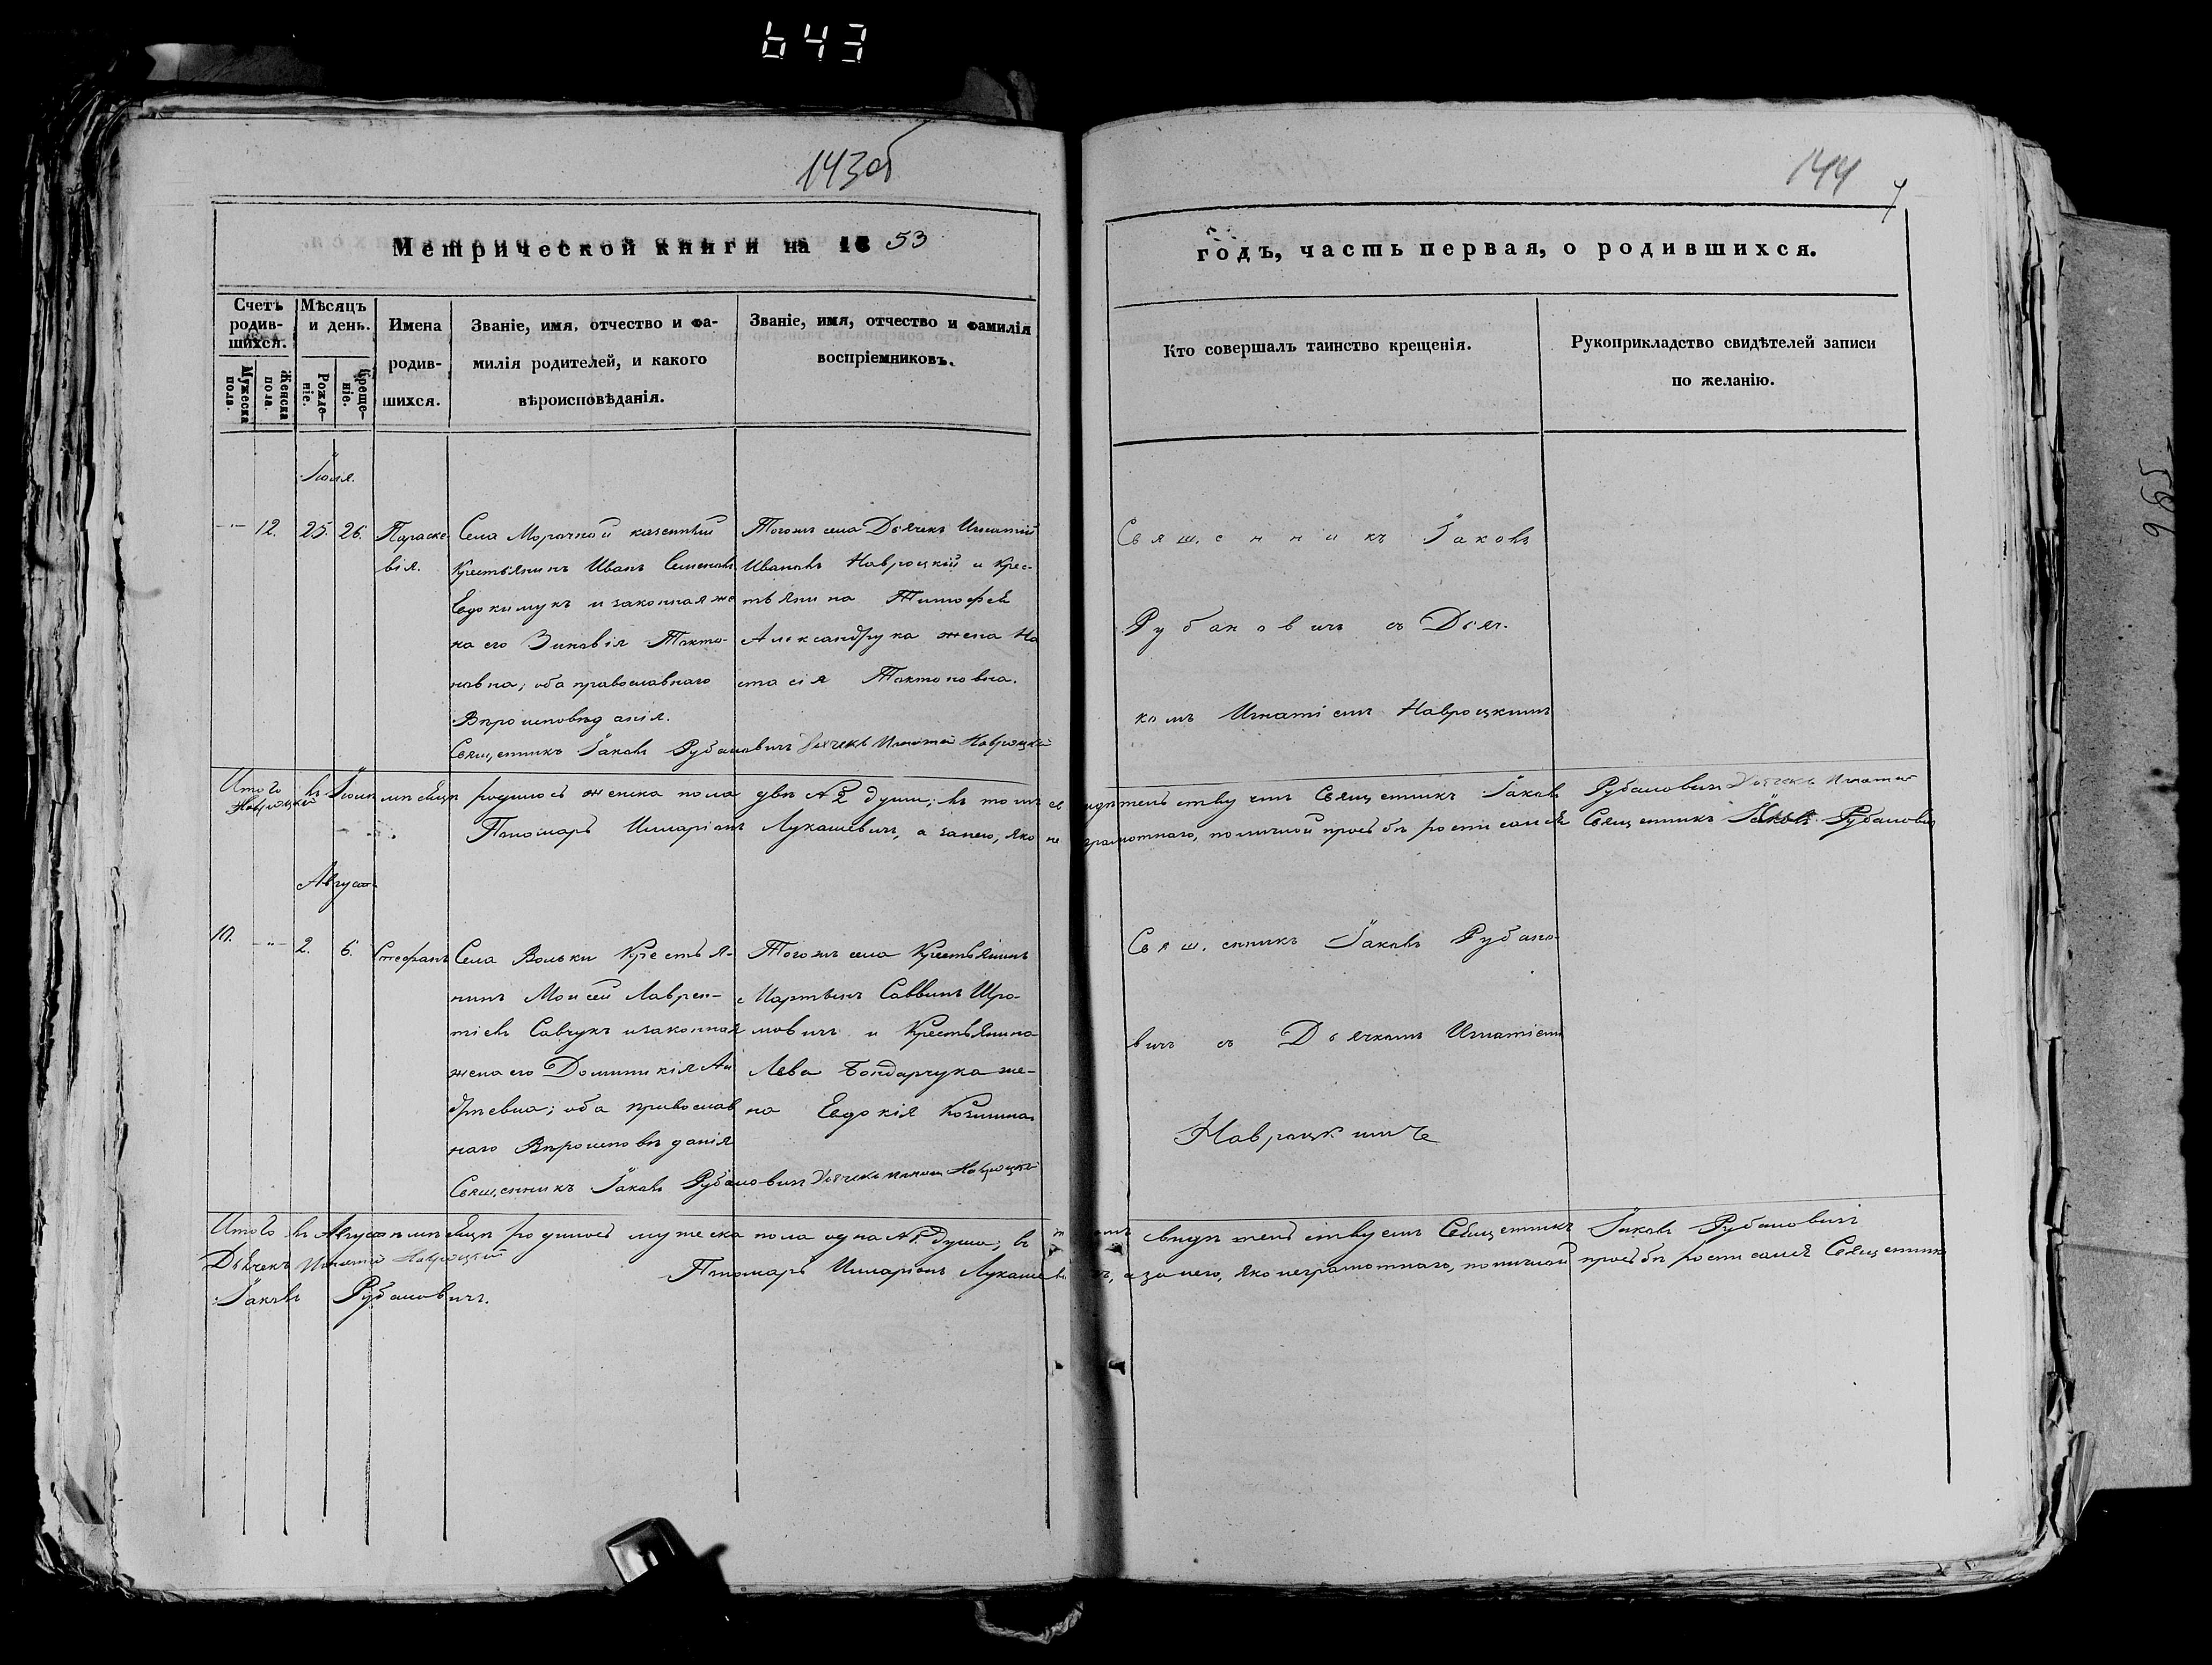 643
143об
144
Метрической книги на 1853
годъ, часть первая, о родившихся.
Счетъ родив-шихся.
Мѣсяцъ и день.
Имена родив-шихся.
Званіе, имя, отчество и фа-
милія родителей, и какого
вѣроисповѣданія.
Званіе, имя, отчество и фамилія
воспріемниковъ.
Мужеска пола.
Женска пола.
Рожде-ніе.
Креще-ніе.
Кто совершалъ таинство крещенія.
Рукоприкладство свидѣтелей записи
по желанію.
Іюля.
12. 25. 26.
Параске-
вія.
Села Морочной казенный
крестьянинъ Иванъ Семеновъ
Евдокимукъ и законная же
на его Зиновія
оба православнаго
Вѣроисповѣданія.
Священникъ Іаковъ Рубановичъ Дьячекъ Игнатій Навроцкій
Тогожъ села Дьячекъ Игнатій
Ивановъ Навроцкій и крес-
тьянина Тимофея
Александрука жена На
стасія
Священникъ Іаковъ
Рубановичъ съ Дьяч-
комъ Игнатіемъ Навроцкимъ
Итого въ Іюлѣ мѣсяцѣ родилось женска пола двѣ №2 души; въ томъ свидѣтельствуемъ Священникъ Іаковъ Рубановичъ Дьячекъ Игнатій
Навроцкій
Пономарь Илларіонъ Лукашевичъ, а занего, яко неграмотнаго, поличной прозьбѣ росписался Священникъ Іаковъ Рубановичъ
Августа
10. 2. 6.
Стефанъ
Села Вольки Крестья-
нинъ Моисей Лаврен-
тіевъ Савчукъ и законная
жена его Доминикія Ан
дреевна; оба православ
наго Вѣроисповѣданія
Священникъ Іаковъ Рубановичъ Дьячекъ Игнатій Навроцкій
Тогожъ села Крестьянинъ
Мартынъ Саввинъ
и Крестьянина
Лева Бондарчука же-
на Евдокія
Священникъ Іаковъ Рубано-
вичъ съ Дьячкомъ Игнатіемъ
Навроцкимъ
Итого въ Августѣ мѣсяцѣ родилось мужеска пола одна №1 душа; въ томъ свидѣтельствуемъ Священникъ Іаковъ Рубановичъ
Дьячекъ Игнатій Навроцкій
Пономарь Илларіонъ Лукашевичъ, а занего, яко неграмотнаго, поличной прозьбѣ росписался Священникъ
Іаковъ Рубановичъ.
965